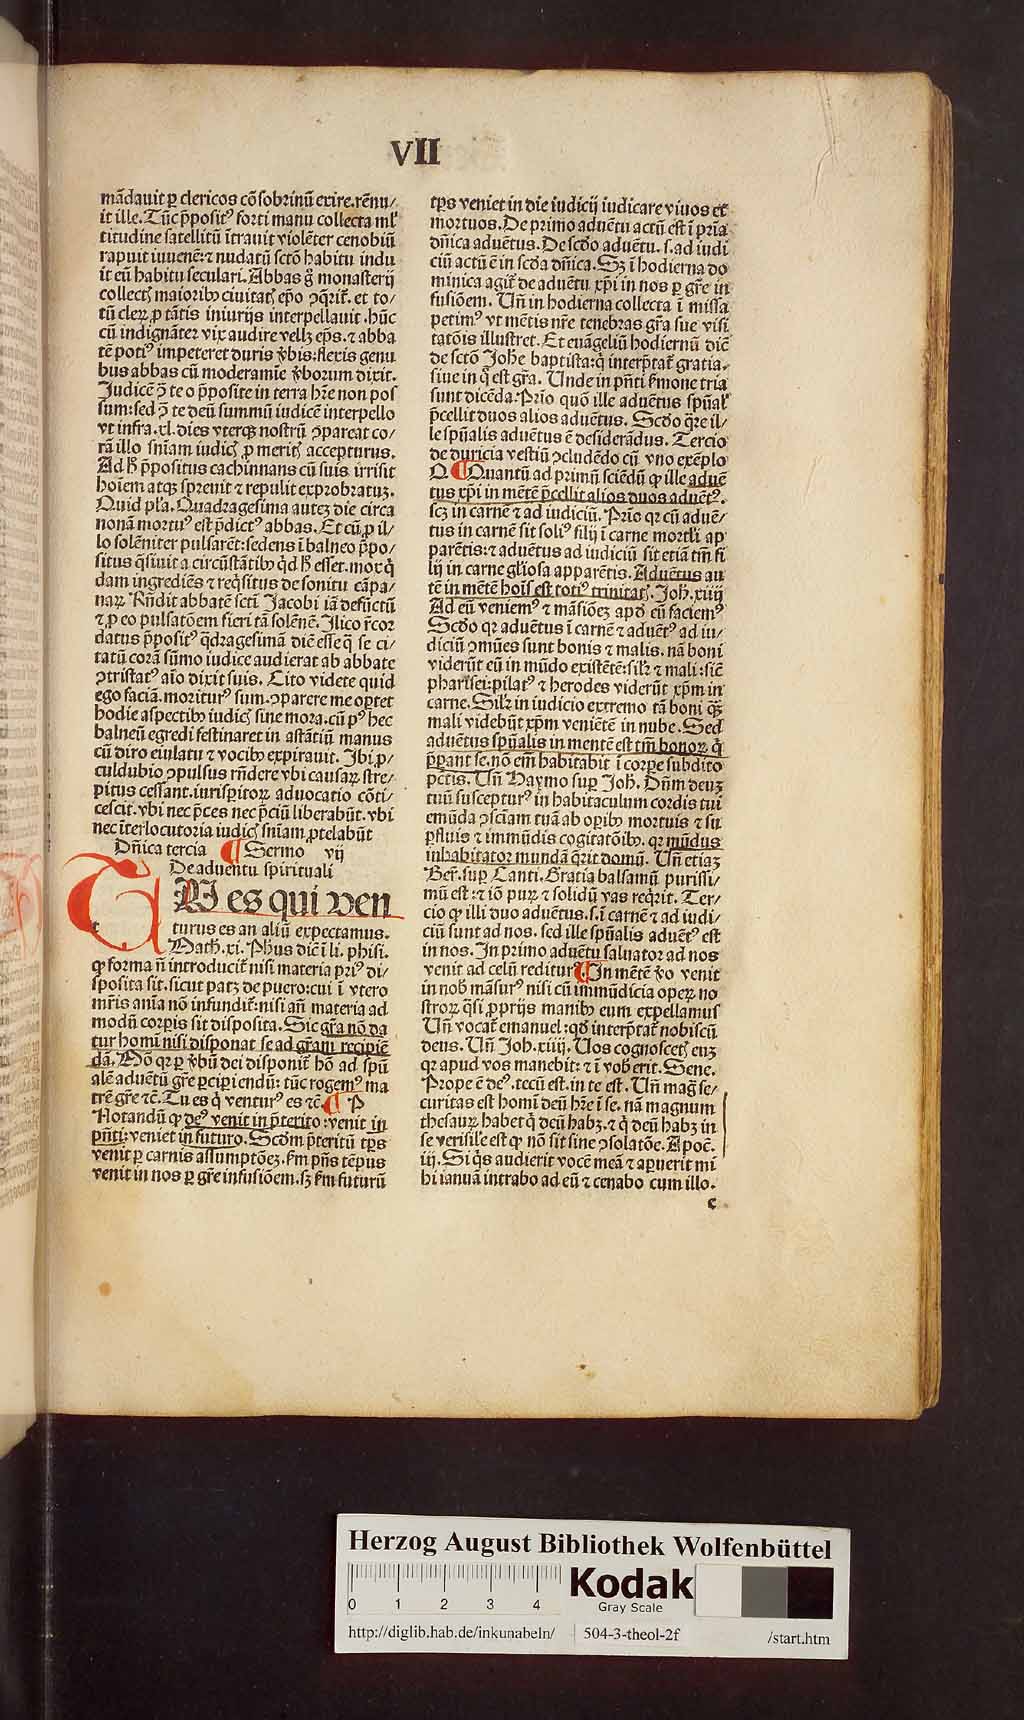 VII
mādauit ꝑ clericos cōsobrinū exire.rēnu/
it ille.Tūc p̄posit⁹ forti manu collecta ml̓
titudine satellitū ītrauit violēter cenobiū
rapuit iuuenē:⁊ nudatū sctō habitu indu
it eū habitu seculari.Abbas g̊ monasterij
collectꝭ maioribꝰ ciuitatꝭ ep̄o ꝯq̄rit̄.et to/
tū cleꝝ ꝓ tātis iniurijs interpellauit.hūc
cū indignāter vix audire vellꝫ ep̄s.⁊ abba
tē poti⁹ impeteret duris v̄bis:flexis genu
bus abbas cū moderamīe v̄borum dixit.
Judicē ꝯ̄ te o p̄posite in terra hr̄e non pos
sum:sed ꝯ̄ te deū summū iudicē interpello
vt infra.xl.dies vterqꝫ nostrū ꝯpareat co/
rā illo sniam iudicꝭ ꝓ meritꝭ accepturus.
Ad h̄ p̄positus cachinnans cū suis irrisit
hoīem atqꝫ spreuit ⁊ repulit exprobratuꝫ.
Quid pl̓a.Quadragesima auteꝫ die circa
nonā mortu⁹ est p̄dict⁹ abbas.Et cū ꝓ il/
lo solēniter pulsarēt:sedens ī balneo p̄po/
situs q̄siuit a circūstātibꝰ qd̄ h̄ esset.mox q̄
dam ingrediēs ⁊ req̄situs de sonitu cāpa/
naꝝ Rn̄dit abbatē scti Jacobi iā defūctū
⁊ ꝓ eo pulsatōem fieri tā solēnē.Ilico r̄cor
datus p̄posit⁹ q̄dragesimā diē esse q̄ se ci/
tatū corā sūmo iudice audierat ab abbate
ꝯtristat⁹ aīo dixit suis.Cito videte quid
ego faciā.moritur⁹ sum.ꝯparere me oportet
hodie aspectibꝰ iudicꝭ sine mora.cū p⁹ hec
balneū egredi festinaret in astātiū manus
cū diro eiulatu ⁊ vocibꝰ expirauit.Ibi ꝓ/
culdubio ꝯpulsus rn̄dere vbi causaꝝ stre/
pitus cessant.iurisꝑitoꝝ aduocatio cōti/
cescit.vbi nec p̄ces nec p̄ciū liberabūt.vbi
nec īterlocutoria iudicꝭ sniam ꝓtelabūt
Dn̄ica tercia ¶ Sermo vij
De aduentu spirituali
TU es qui ven
turus es an aliū expectamus.
Math.xi.Ph̄us diē ī li.phisi.
ꝙ forma n̄ introducit̄ nisi materia pri⁹ di/
sposita sit.sicut patꝫ de puero:cui ī vtero
mr̄is anīa nō infundit̄:nisi an̄ materia ad
modū corꝑis sit disposita.Sic gr̄a nō da
tur homī nisi disponat se ad gr̄am recipiē
dā.Mō qꝛ ꝑ v̄bū dei disponit̄ hō ad spū
alē aduētū gr̄e ꝑcipiendū:tūc rogem⁹ ma
trē gr̄e ⁊c.Tu es q̄ ventur⁹ es ⁊c. ¶ P
Notandū ꝙ de⁹ venit in p̄terito:venit in
pn̄ti:veniet in futuro.Scdm p̄teritū tꝑs
venit ꝑ carnis assumptōeꝫ.ẜm pn̄s tēpus
venit in nos ꝑ gr̄e infusiōem.sꝫ ẜm futurū
tꝑs veniet in die iudicij iudicare viuos et
mortuos.De primo aduētu actū est ī pria
dn̄ica aduētus.De scdo aduētu.s.ad iudi
ciū actū ē in scda dn̄ica.Sꝫ ī hodierna do
minica agit̄ de aduētu xp̄i in nos ꝑ gr̄e in
fusiōem.Un̄ in hodierna collecta ī missa
petim⁹ vt mētis nr̄e tenebras gr̄a sue visi
tatōis illustret.Et euāgeliū hodiernū diē
de sctō Joh̄e baptista:q̄ interp̄tat̄ gratia.
siue in q̄ est gr̄a.Unde in pn̄ti ẜmone tria
sunt dicēda.Prīo quō ille aduētus spūal̓
p̄cellit duos alios aduētus.Scdo q̄re il/
le spūalis aduētus ē desiderādus.Tercio
de duricia vestiū ꝯcludēdo cū vno exēplo
Q. ¶Quantū ad primū sciēdū ꝙ ille adue
tus xp̄i in mētē p̄cellit alios duos aduēt⁹.
scꝫ in carnē ⁊ ad iudiciū.Prīo qꝛ cū aduē/
tus in carnē sit soli⁹ filij ī carne mortl̓i ap
parētis:⁊ aduētus ad iudiciū sit etiā tm̄ fi
lij in carne gl̓iosa apparētis.Aduētus au
tē in mētē hoīs est toti⁹ trinitatꝭ.Joh̄.xiiij
Ad eū veniem⁹ ⁊ māsiōeꝫ apd̓ eū faciem⁹
Scdo qꝛ aduētus ī carnē ⁊ aduēt⁹ ad iu/
diciū ꝯmūes sunt bonis ⁊ malis.nā boni
viderūt eū in mūdo existētē:sil̓r ⁊ mali:sic̄
pharisei:pilat⁹ ⁊ herodes viderūt xp̄m in
carne.Sil̓r in iudicio extremo tā boni qꝫ
mali videbūt xp̄m veniētē in nube.Sed
aduētus spūalis in mentē est tm̄ bonoꝝ q̄
p̄ꝑant se.nō em̄ habitabit ī corꝑe subdito
pctīs.Un̄ Haymo suꝑ Joh̄.Dn̄m deuꝫ
tuū susceptur⁹ in habitaculum cordis tui
emūda ꝯsciam tuā ab oꝑibꝰ mortuis ⁊ su
ꝑfluis ⁊ immūdis cogitatōibꝰ.qꝛ mūdus
inhabitator mundā q̄rit domū.Un̄ etiaꝫ
Ber̄.suꝑ Canti.Gratia balsamū purissi/
mū est:⁊ iō puꝝ ⁊ solidū vas req̄rit.Ter/
cio ꝙ illi duo aduētus.s.ī carnē ⁊ ad iudi/
ciū sunt ad nos.sed ille spūalis aduēt⁹ est
in nos.In primo aduētu saluator ad nos
venit ad celū rediturꝰ. ¶In mētē v̄o venit
in nob̄ māsur⁹ nisi cū immūdicia opeꝝ no
stroꝝ q̄si ꝓprijs manibꝰ eum expellamus
Un̄ vocat̄ emanuel:qd̓ interp̄tat̄ nobiscū
deus.Un̄ Joh.xiiij.Uos cognoscetꝭ euꝫ
qꝛ apud vos manebit:⁊ ī vob̄ erit.Sene.
Prope ē de⁹.tecū est.in te est.Un̄ mag̓ se/
curitas est homī deū hr̄e ī se.nā magnum
thesauꝝ habet q̄ deū habꝫ.⁊ q̄ deū habꝫ in
se verisile est ꝙ nō sit sine ꝯsolatōe.Apoc̄.
iij.Si q̄s audierit vocē meā ⁊ aperuerit mi
hi ianuā intrabo ad eū ⁊ cenabo cum illo.
c
Herzog August Bibliothek Wolfenbüttel
0 1 2 3 4
Kodak
Gray Scale
http://diglib.hab.de/inkunabeln/ 504-3-theol-2f /start.htm